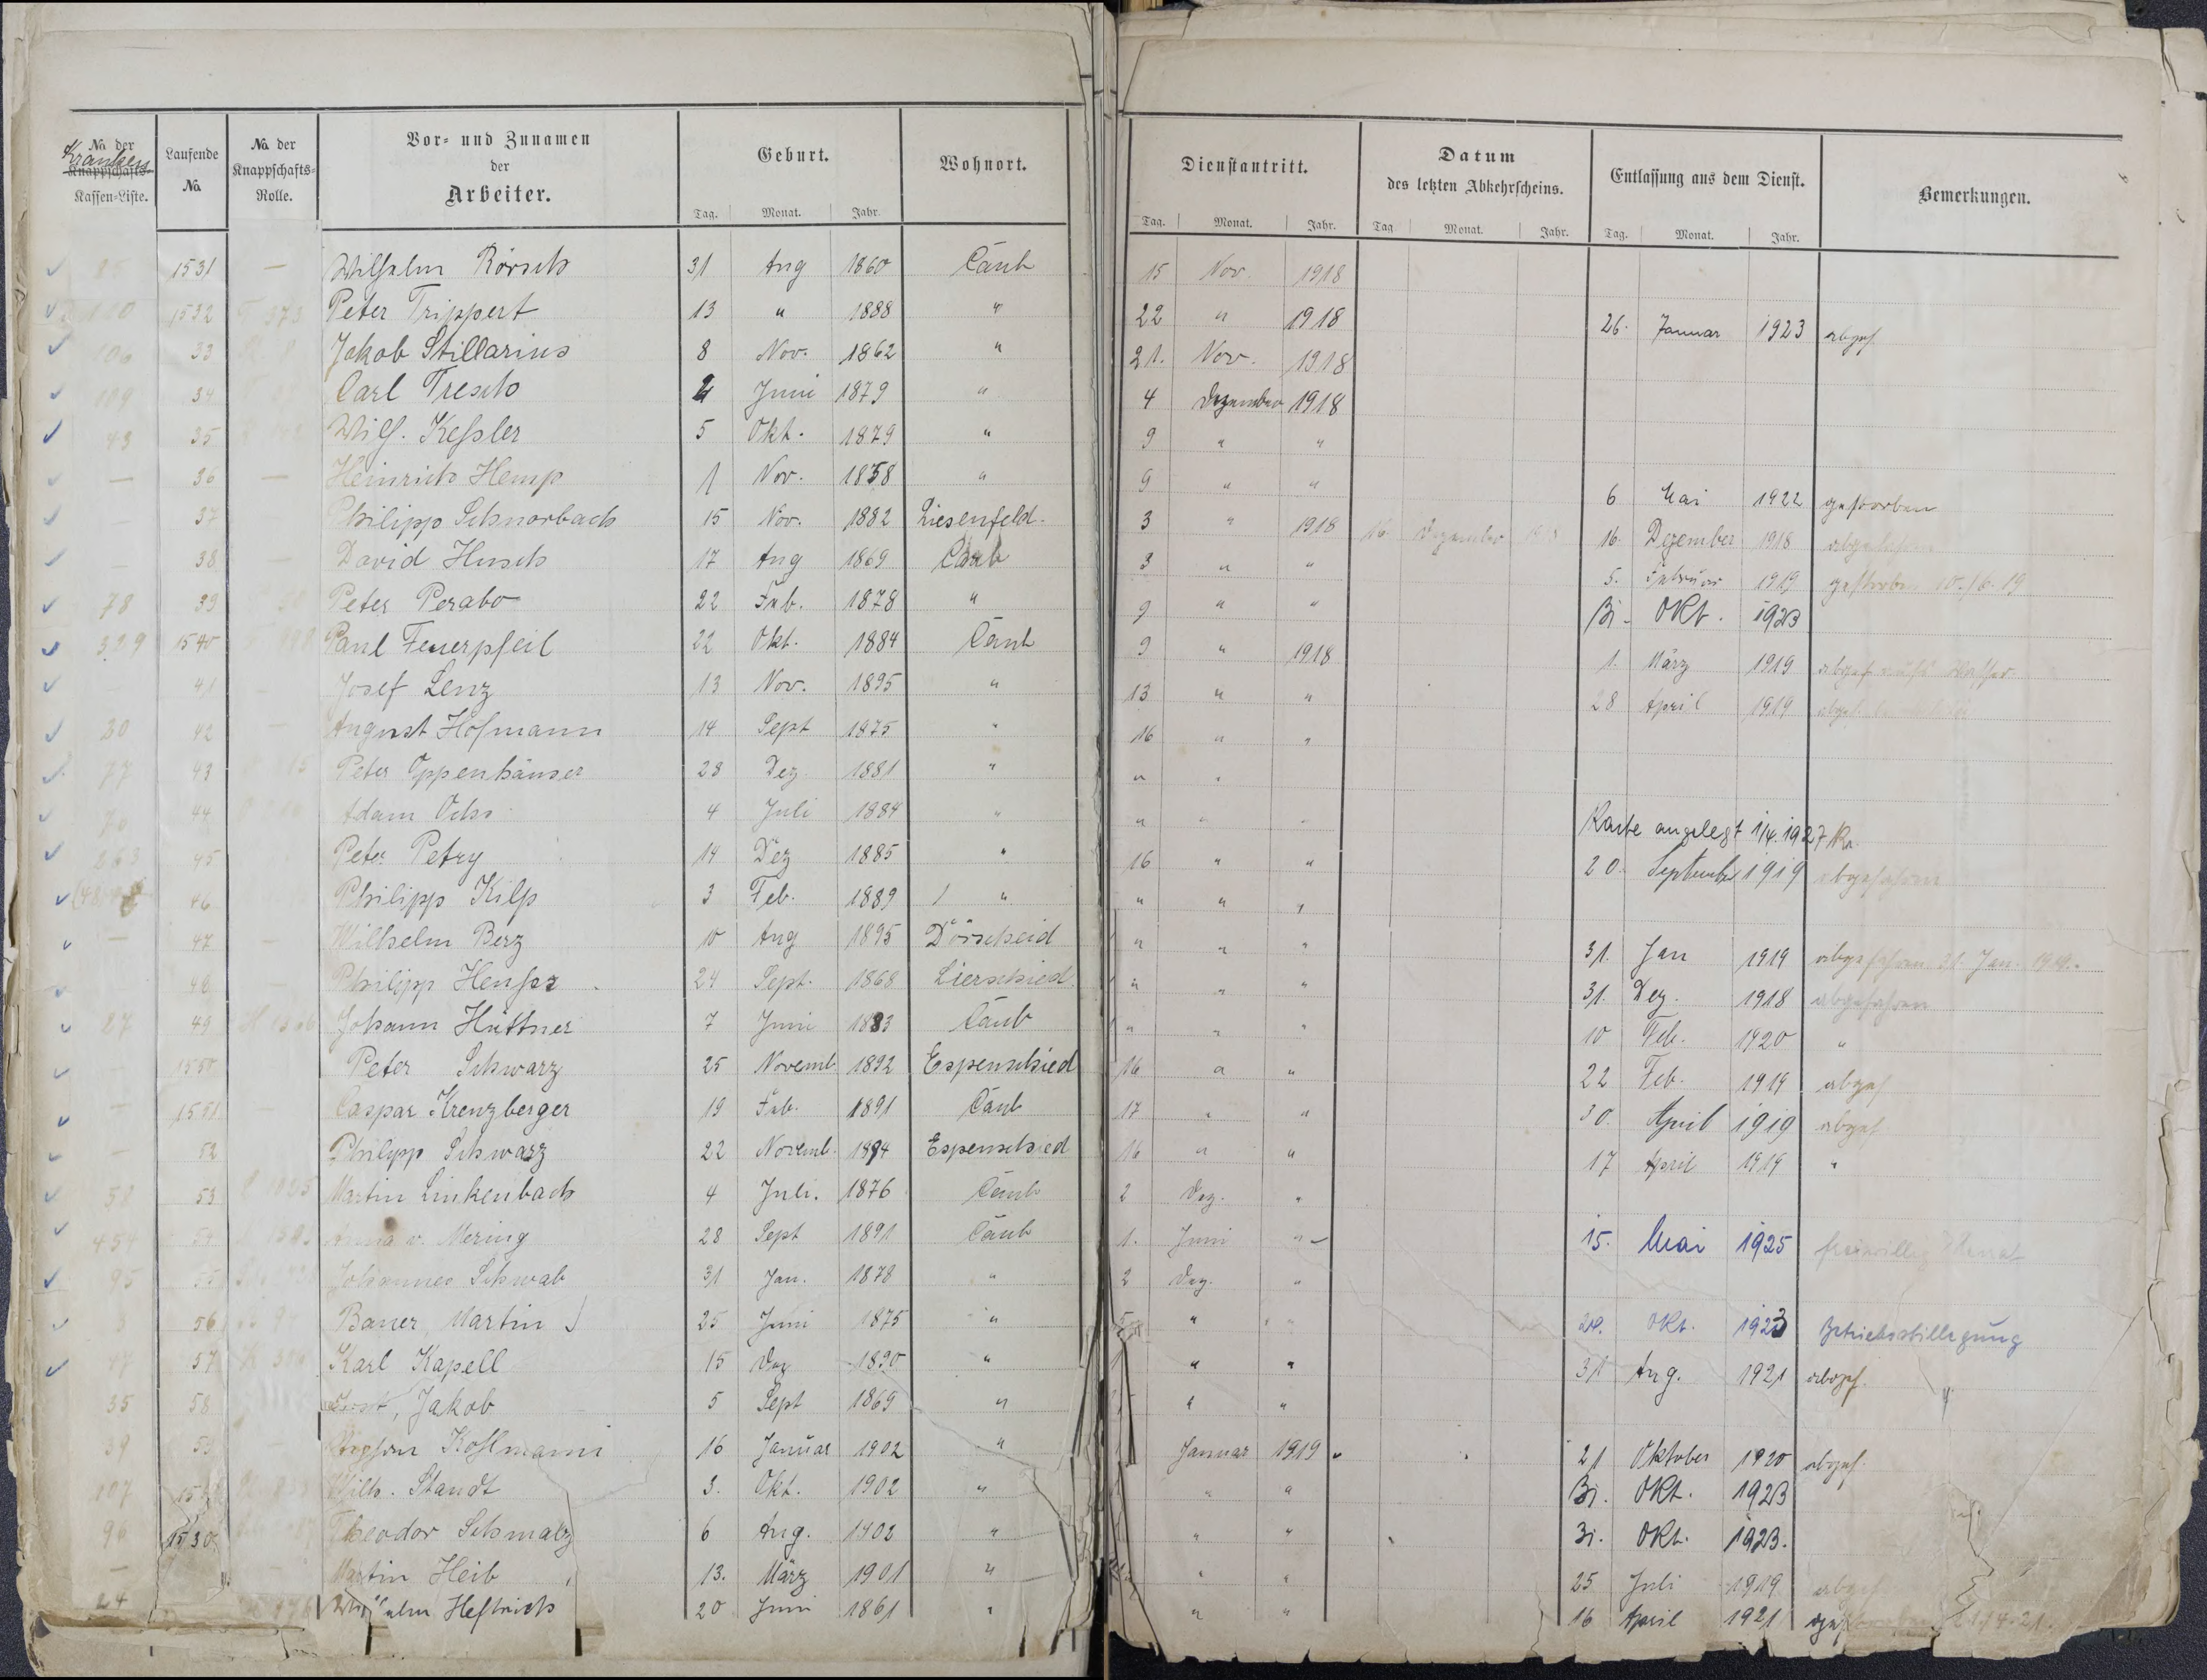 No der
Kranken
Knappschafts-
Kassen-Liste.
Laufende
No
No der
Knappschafts-
Rolle.
Vor- und Zunamen
der
Arbeiter.
Geburt.
Tag. Monat. Jahr.
Wohnort.
Dienstantritt.
Tag. Monat. Jahr.
Datum
des letzten Abkehrscheins.
Tag. Monat. Jahr.
Entlassung aus dem Dienst.
Tag. Monat. Jahr.
Bemerkungen.
8 1531 — Wilhelm Rörsch 31 Aug 1860 Caub 15 Nov. 1918
110 1532 373 Peter Trippert 13 " 1888 " 22 " 1918 26. Januar 1923 abgef
106 33 Jakob Stillarius 8 Nov. 1862 " 21. Nov. 1918
109 34 Carl Tresch 4 Juni 1879 " 4 Dezember 1918
43 35 Wilh. Keßler 5 Okt. 1879 " 9 " "
— 36 — Heinrich Hemp 1 Nov. 1858 " 9 " " 6 Mai 1922 gestorben
— 37 Philipp Schnorbach 15 Nov. 1882 Liesenfeld. 3 " 1918 16. Dezember 1918 16. Dezember 1918
— 38 — David Husch 17 Aug 1869 Caub 3 " " 5. Februar 1919 gestorben 10./6.19
78 39 Peter Perabo 22 Feb. 1878 " 9 " " 31. Okt. 1923
329 1540 Paul Feuerpfeil 22 Okt. 1884 Caub 9 " 1918 1. März 1919 abgef
— 41 — Josef Lenz 13 Nov. 1895 " 13 " " 28 April 1919
30 42 — August Hofmann 14 Sept 1875 " 16 " "
77 43 Peter Oppenhäuser 28 Dez. 1881 " " "
70 44 Adam Ochs 4 Juli 1884 " " " " Karte angelegt 1/4. 1927 Kr.
263 45 Peter Petry 14 Dez 1885 " 16 " " 20. September 1919 abgefahren
46 Philipp Kilp 3 Feb. 1889 " " " "
— 47 — Wilhelm Berz 10 Aug 1895 Dörscheid " " " 31. Jan 1919 abgefahren 31. Jan. 1919.
48 — Philipp 24 Sept. 1868 Lierschied " " " 31. Dez. 1918 abgefahren
27 49 Johann Hüttner 7 Juni 1883 Caub " " " 10 Feb. 1920 "
1550 Peter Schwarz 25 Novemb 1892 Espenschied 16 " " 22 Feb. 1919 abgef
— 1551 Caspar Kreuzberger 19 Feb. 1891 Caub 17 " " 30. April 1919 abgef
— 52 Philipp Schwarz 22 Novemb. 1894 Espenschied 16 " " 17 April 1919 "
58 53 Martin Linkenbach 4 Juli. 1876 Caub 2 Dez. "
454 54 Anna v. Mering 28 Sept 1891 Caub 1. Juni " 15. Mai 1925 freiwillig
95 55 Johannes Schwab 31 Jan. 1878 " 2 Dez. "
56 Bauer, Martin 25 Juni 1875 " 5 " " 20. Okt. 1923 Betriebsstillegung
17 57 Karl Kapell 15 Dez 1890 " " " 31 Aug. 1921 abgef.
35 58 Jakob 5 Sept 1869 " " "
39 59 Kohlmann 16 Januar 1902 " Januar 1919 21 Oktober 1920 abgef.
107 Wilh. Staudt 3. Okt. 1902 " " " 31. Okt. 1923
96 1530 Theodor Schmalz 6 Aug. 1902 " " " 31. Okt. 1923.
— Martin Heib 13. März 1901 " " " 25 Juli 1919 abgef
24 Wilhelm Heftrich 20 Juni 1861 " " " 16 April 1921